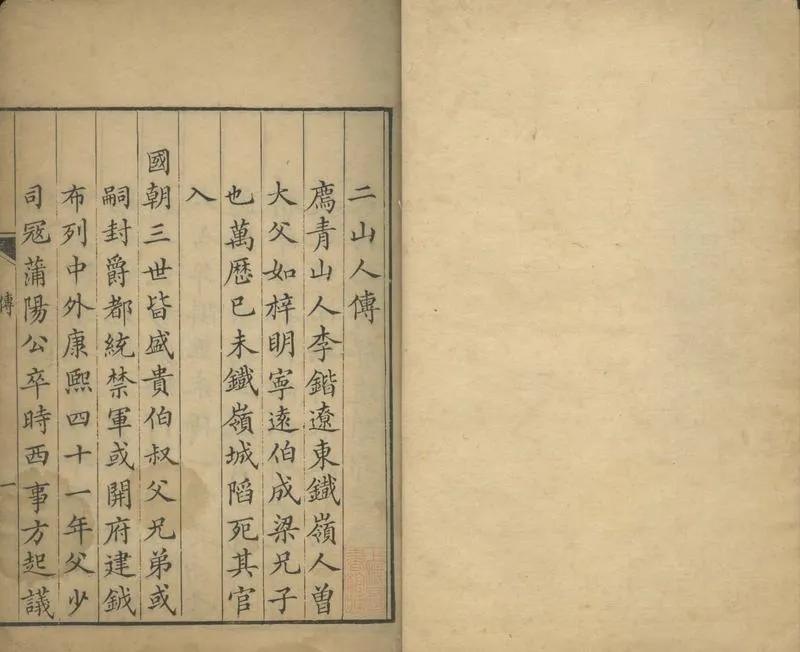 二山人傳
廌青山人李鍇遼東鐵嶺人曾
大父如梓明寧遠伯成梁兄子
也萬歷已未鐵嶺城陷死其官
入
國朝三世皆盛貴伯叔父兄弟或
嗣封爵都統禁軍或開府建鉞
布列中外康熙四十一年父少
司冦蒲陽公卒時西事方起議
傳
一